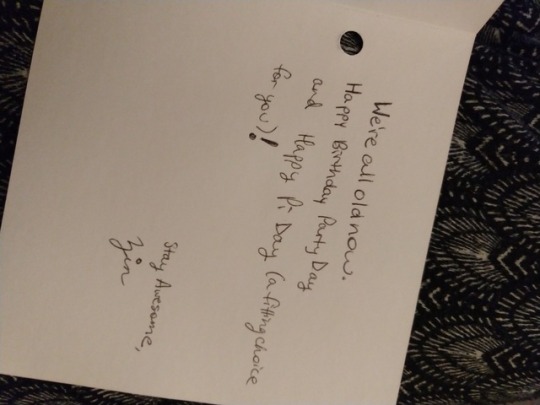 We're all old now.
Happy Birthday Party Day
and Happy Pi Day (a fitting choice
for you)!
Stay Awesome,